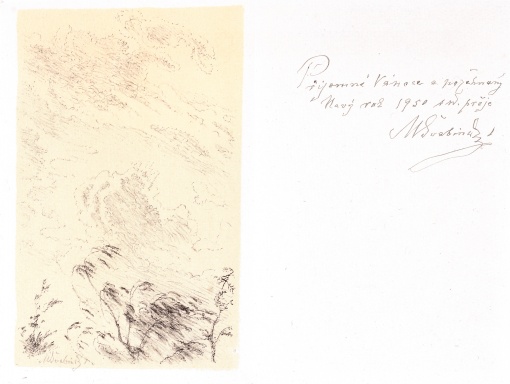 Příjemné Vánoce a požehnaný
Nový rok 1950 s úv. přeje
MŠvabinský
MŠvabinský